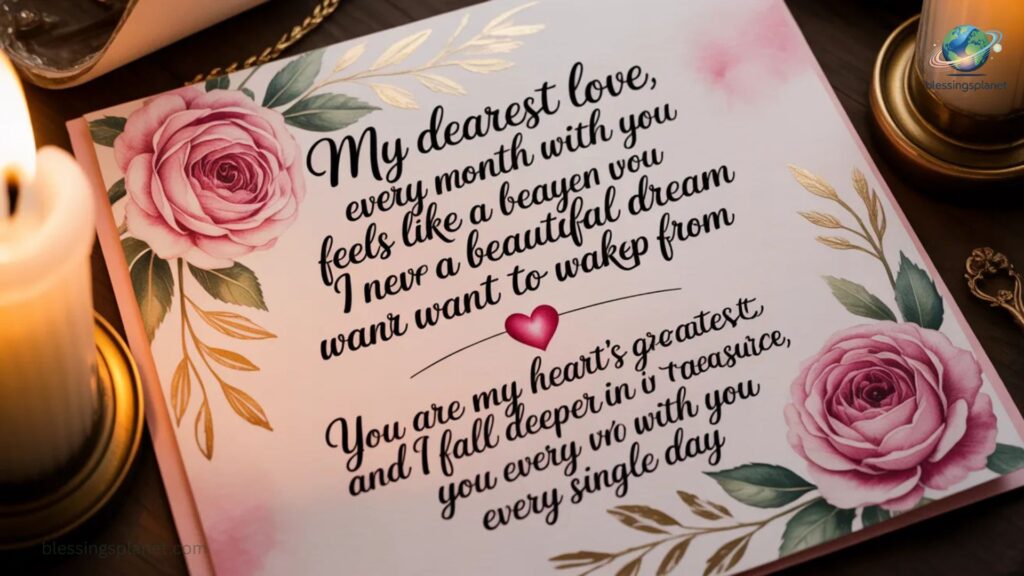 My dearest love,
every month with you
feels like a beayen vou
I nevr a beautiful dream
wanr want to wakep from
You are my heart's greatest,
and I fall deeper in treasurce,
you every with you
every single day
blessingsplanet
blessingsplanet.com